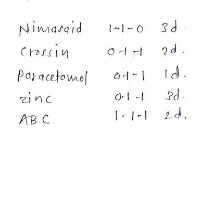 Nimasaid 1-1-0 3d.
Crossin 0-1-1 2d.
Paracetomol 0-1-1 1d.
zinc 0-1-1 3d.
ABC 1-1-1 2d.